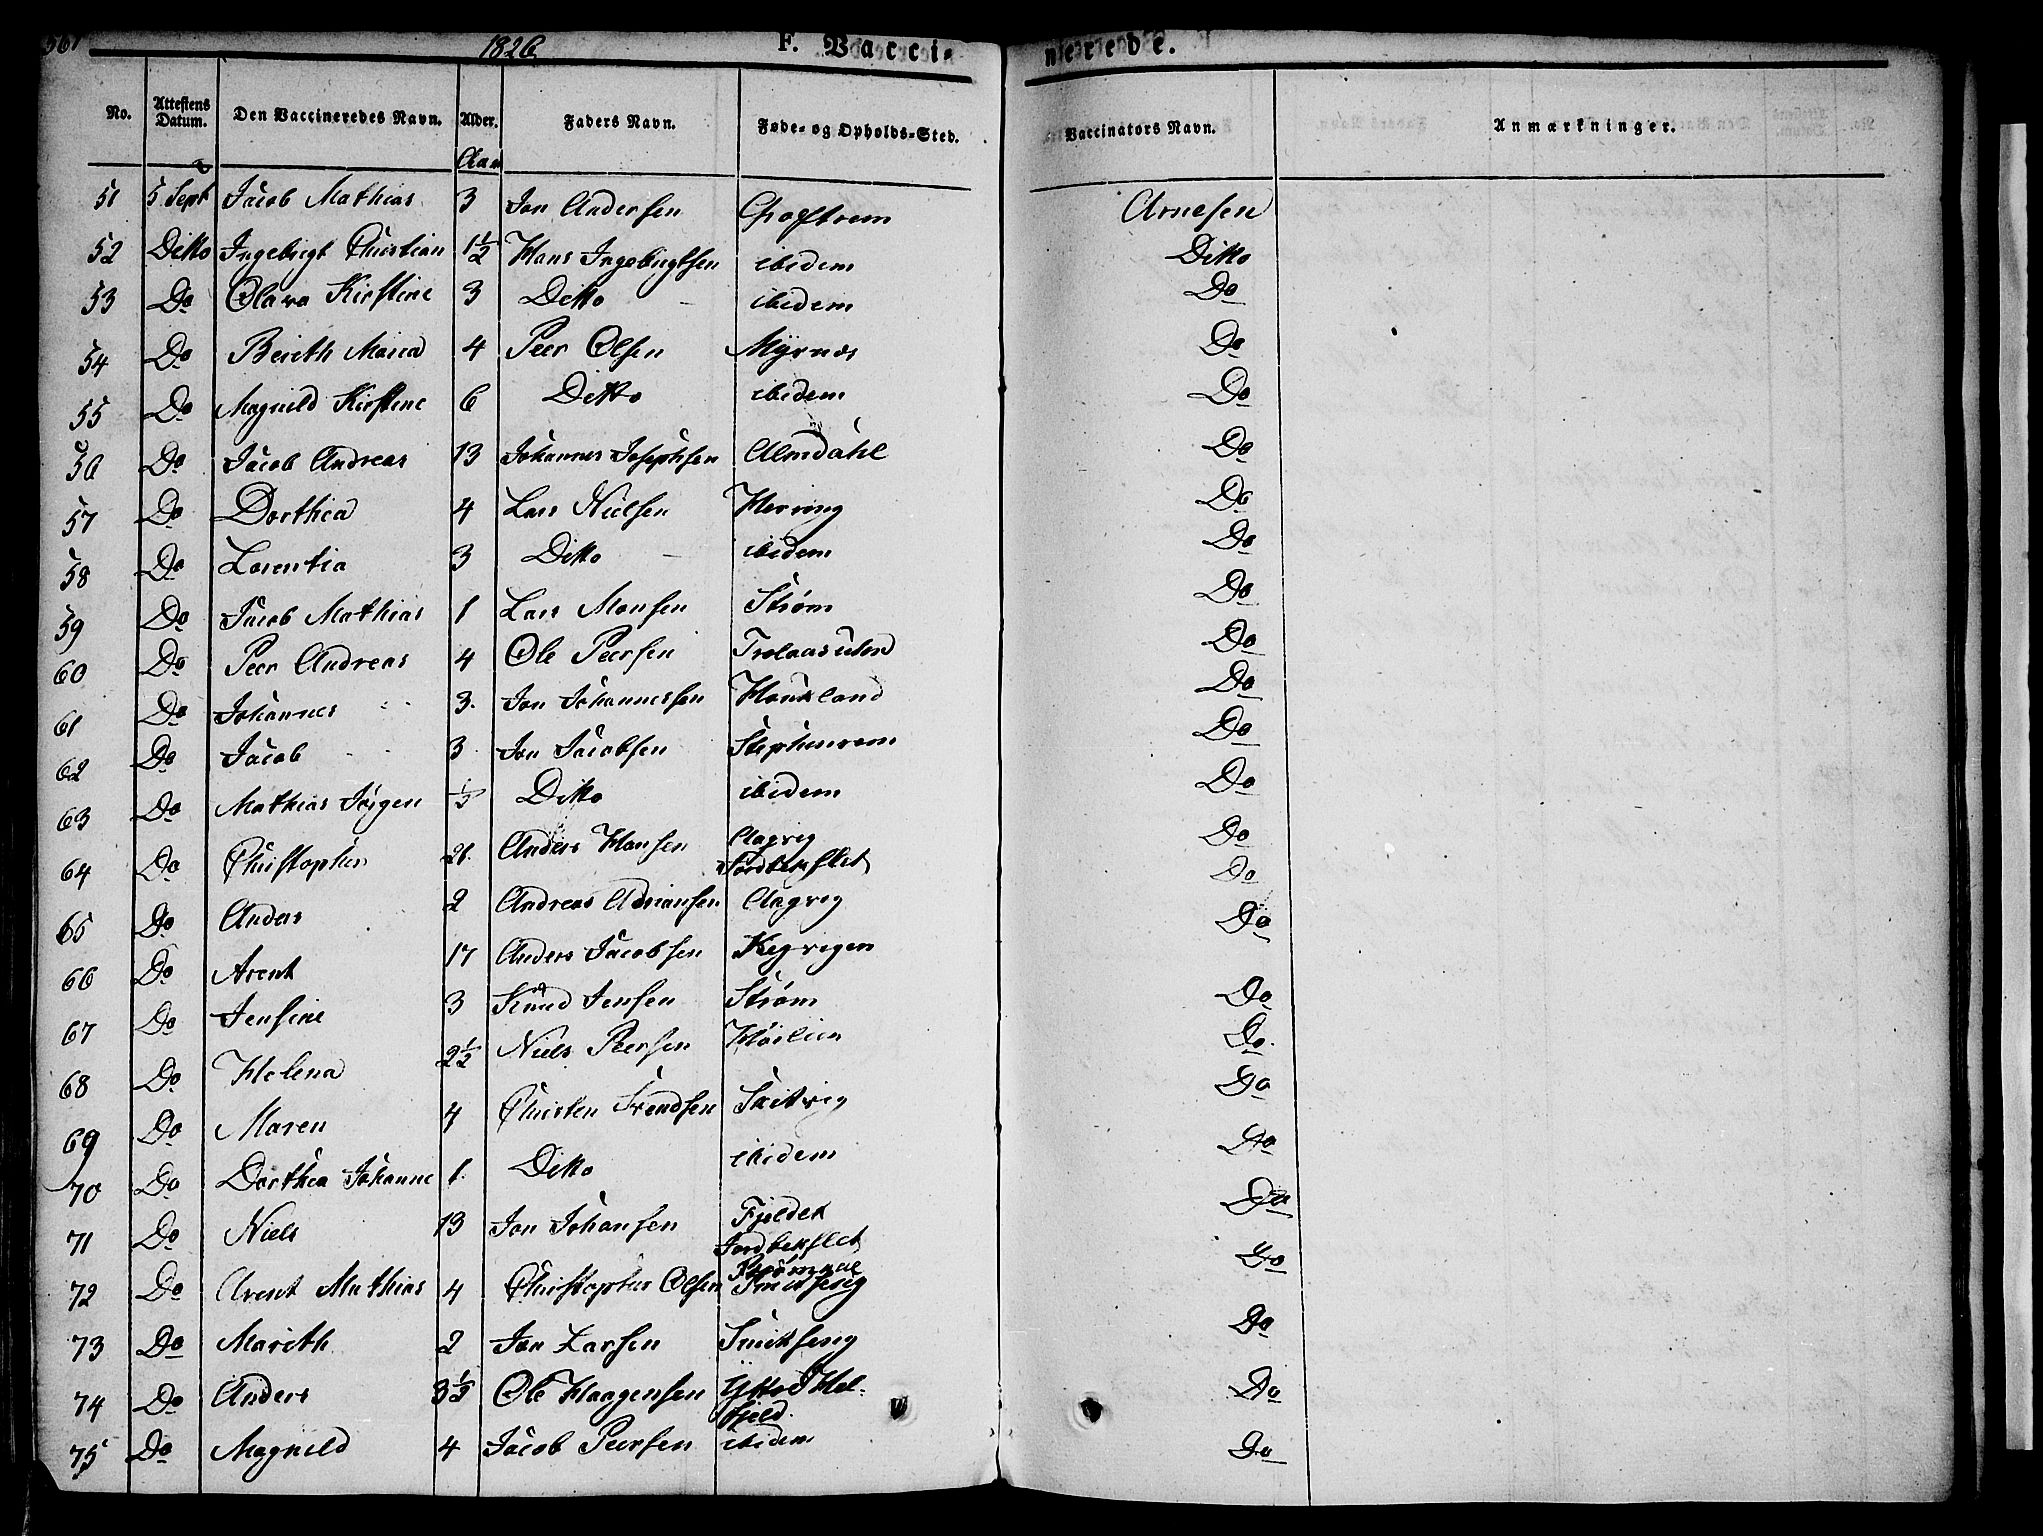 567
1826
F. Vacci-
nerede.
No. Attestens Datum. Den Vaccineredes Navn. Alder. Fabers Navn. Føde- og Opholds-Sted. Vaccinators Navn. Anmærkninger.
Aar
51 5 Sept Jacob Mathias 3 Jon Andersen Arnesen
52 Ditto Ingebrigt Christian 1½ Hans Ingebrigtsen ibidem Ditto
53 Do Olava Kirstine 3 Ditto ibidem Do
54 Do Berith Maria 4 Peer Olsen Myrnes Do
55 Do Magnild Kirstine 6 Ditto ibidem Do
56 Do Jacob Andreas 13 Johannes Josephsen Almdahl Do
57 Do Dorthea 4 Lars Nielsen Herring Do
58 Do Lorentia 3 Ditto ibidem Do
59 Do Jacob Mathias 1 Lars Monsen Strøm Do
60 Do Peer Andreas 4 Ole Peersen Do
61 Do Johannes 3. Jon Johannessen Haukland Do
62 Do Jacob 3 Jon Jacobsen Stephenrem Do
63 Do Mathias Jørgen ½ Ditto ibidem Do
64 Do Christopher 21. Anders Hansen Aagvig Do
Jordbekslet Do
65 Do Anders 2 Andreas Adriansen Aagvig Do
66 Do Arent 17 Anders Jacobsen
67 Do Jensine 3 Knud Jensen Strøm Do
68 Do Helena 2½ Niels Peersen Høilien Do.
69 Do Maren 4 Christen Svendsen Do
70 Do Dorthea Johanne 1. Ditto ibidem Do
71 Do Niels 13 Jon Johansen Fjeldet Do
Jordbekslet
72 Do Arent Mathias 4 Christopher Olsen Do
73 Do Marith 2 Jon Larsen Smidseng Do
74 Do Anders 3½ Ole Haagensen Ytter Hel- Do
fjeld.
75 Do Magnild 4 Jacob Peersen ibidem Do